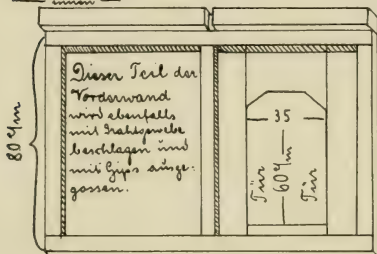 innen
Dieser Teil der
Vorderwand
wird ebenfalls
mit Drahtgewebe
beschlagen und
mit Gips ausge-
gossen.
80 ℊm
35
Tür
60 ℊm
Tür